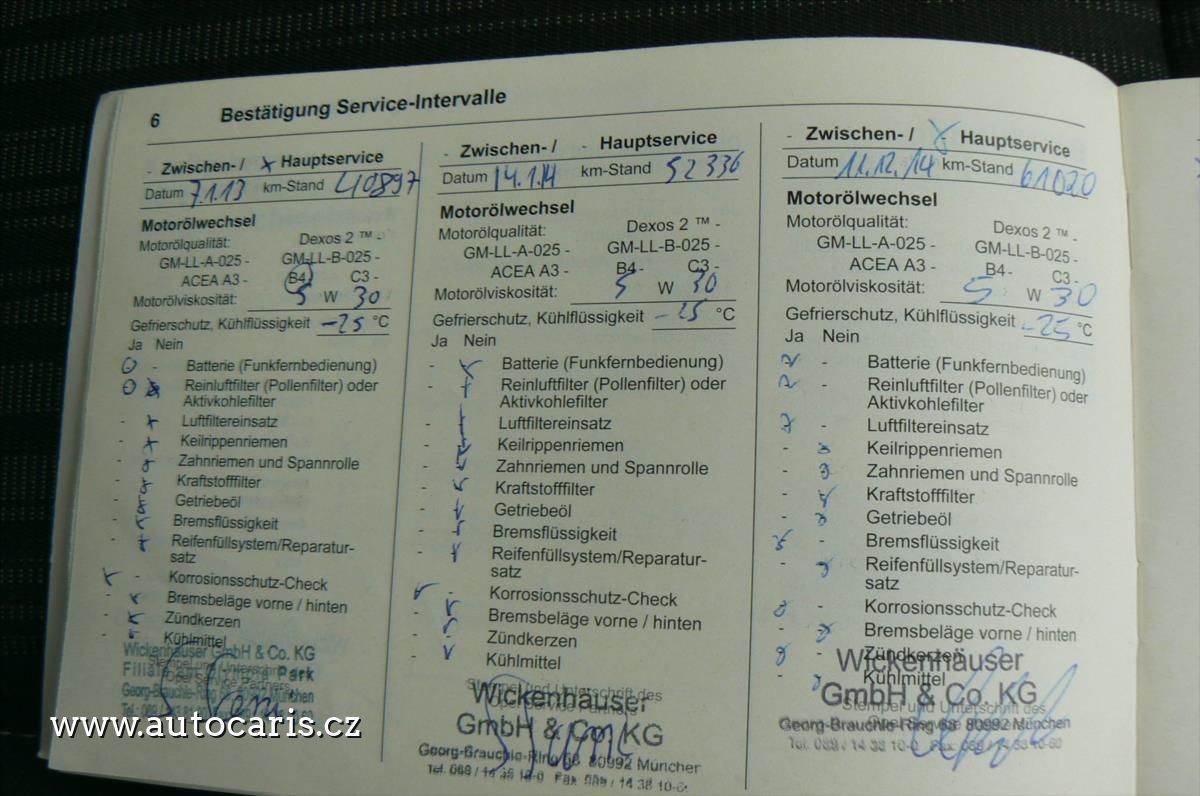 6 Bestätigung Service-Intervalle
- Zwischen- / x Hauptservice
Datum 7.1.13 km-Stand 40897
Motorölwechsel
Motorölqualität: Dexos 2 ™ -
GM-LL-A-025 - GM-LL-B-025 -
ACEA A3 - B4 C3 -
Motorölviskosität: 5 W 30
Gefrierschutz, Kühlflüssigkeit -25 °C
Ja Nein
Batterie (Funkfernbedienung)
Reinluftfilter (Pollenfilter) oder
Aktivkohlefilter
Luftfiltereinsatz
Keilrippenriemen
Zahnriemen und Spannrolle
Kraftstofffilter
Getriebeöl
Bremsflüssigkeit
Reifenfüllsystem/Reparatur-
satz
Korrosionsschutz-Check
Bremsbeläge vorne / hinten
Zündkerzen
Kühlmittel
Wickenhäuser GmbH & Co. KG
Filiale am Olympia Park
Georg-Brauchle-Ring 68 80992 München
- Zwischen- / - Hauptservice
Datum 14.1.14 km-Stand 52336
Motorölwechsel
Motorölqualität: Dexos 2 ™ -
GM-LL-A-025 - GM-LL-B-025 -
ACEA A3 - B4 - C3 -
Motorölviskosität: 5 W 30
Gefrierschutz, Kühlflüssigkeit -25 °C
Ja Nein
Batterie (Funkfernbedienung)
Reinluftfilter (Pollenfilter) oder
Aktivkohlefilter
Luftfiltereinsatz
Keilrippenriemen
Zahnriemen und Spannrolle
Kraftstofffilter
Getriebeöl
Bremsflüssigkeit
Reifenfüllsystem/Reparatur-
satz
Korrosionsschutz-Check
Bremsbeläge vorne / hinten
Zündkerzen
Kühlmittel
Stempel und Unterschrift des
Wickenhäuser
GmbH & Co. KG
Georg-Brauchle-Ring 68 80992 München
Tel. 089 / 14 38 10-0 Fax 089 / 14 38 10-
- Zwischen- / x Hauptservice
Datum 11.12.14 km-Stand 61020
Motorölwechsel
Motorölqualität: Dexos 2 ™ -
GM-LL-A-025 - GM-LL-B-025 -
ACEA A3 - B4 - C3 -
Motorölviskosität: 5 W 30
Gefrierschutz, Kühlflüssigkeit -25 °C
Ja Nein
Batterie (Funkfernbedienung)
Reinluftfilter (Pollenfilter) oder
Aktivkohlefilter
Luftfiltereinsatz
Keilrippenriemen
Zahnriemen und Spannrolle
Kraftstofffilter
Getriebeöl
Bremsflüssigkeit
Reifenfüllsystem/Reparatur-
satz
Korrosionsschutz-Check
Bremsbeläge vorne / hinten
Zündkerzen
Kühlmittel
Wickenhäuser
GmbH & Co. KG
Stempel und Unterschrift des
Georg-Brauchle-Ring 68 80992 München
Tel. 089 / 14 38 10-0 Fax 089 / 14 38 10-60
www.autocaris.cz